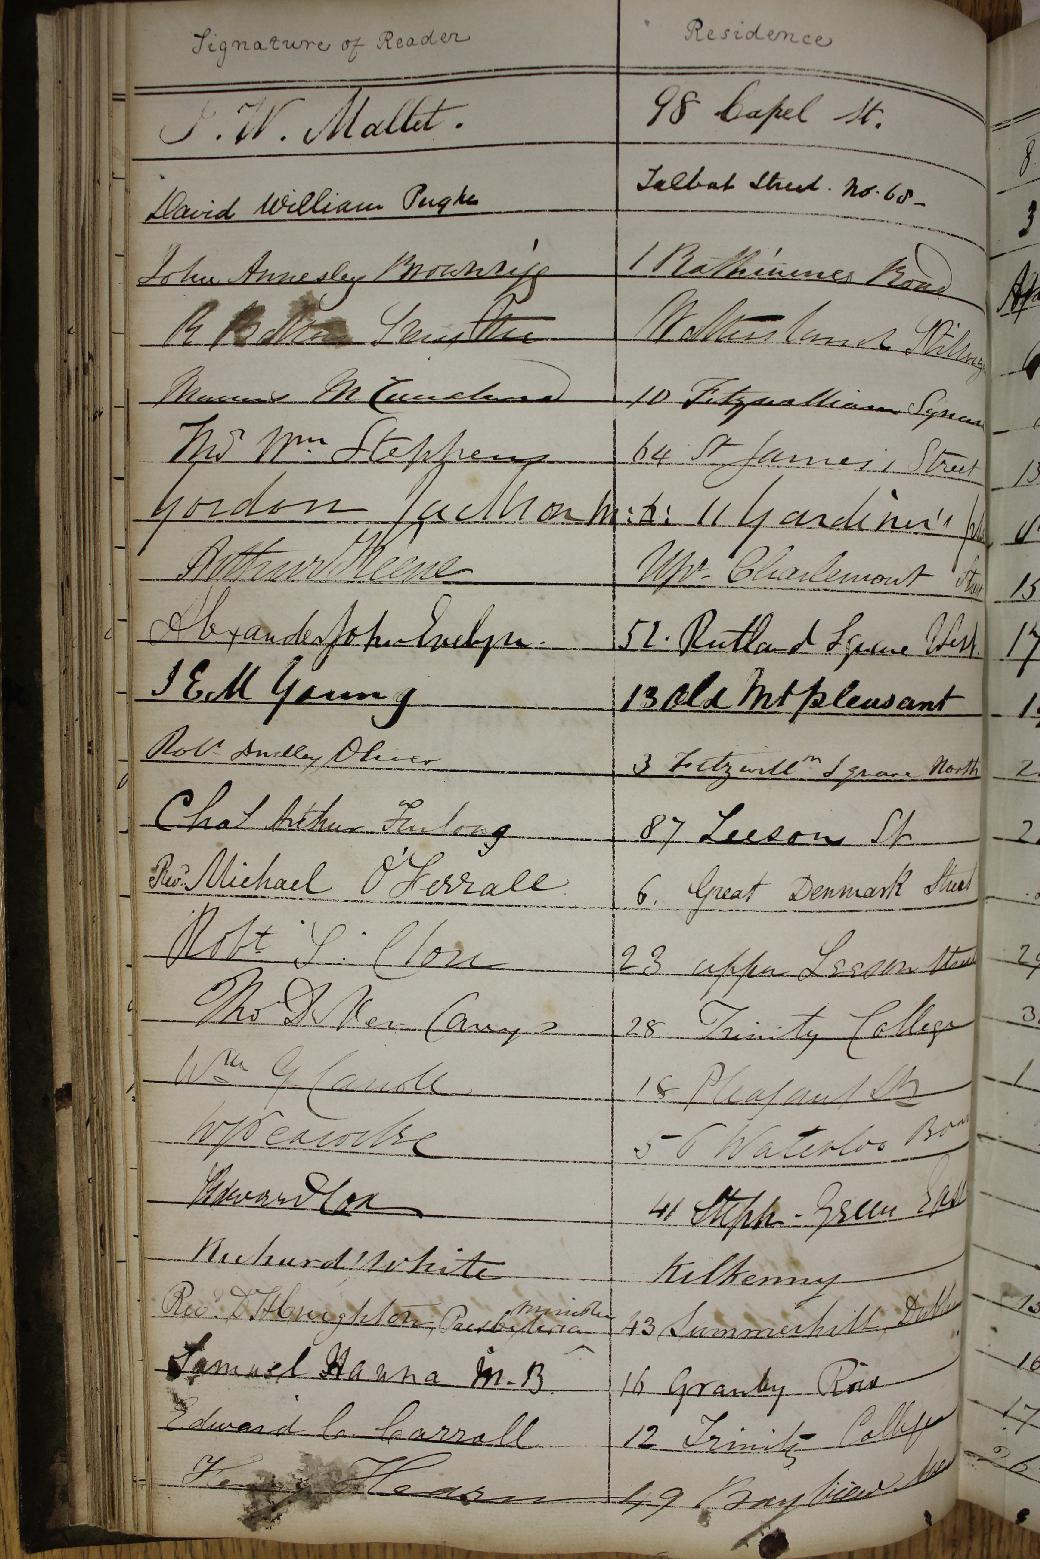 Signature of Reader Residence
J. W. Mallet. 98 Capel St.
David William Pughe Talbot Street. No. 68-
John Annesley Brownrigg 1 Rathmines Road
R Smythe
10 Fitzwilliam Square
Thos Wm Stephens 64 St James's Street
Gordon Jackson M:B: 11 Gardiner's
Arthur Keene Upr. Charlemont Street
Alexander John Evelyn. 52. Rutland Square West
J E M Young 13 Old Mt pleasant
Robt Dudley Oliver 3 Fitzwillm Square North
Chas Arthur Furlong 87 Leeson St
Revd. Michael O'Ferrall 6. Great Denmark Street
Robt S. Clore 23 upper Leeson Street
Thos D 28 Trinity College
Wm G Carroll 18 Pleasant St
W Peacocke 56 Waterloo Road
Edward Cox 41 Steph- Green East
Richard White Kilkenny
Revd. Presbyterian minister 43 Summerhill, Dublin
Samuel Hanna M.B. 16 Granby Row
Edward C. Carroll 12 Trinity College
Hearn 49 Bayview